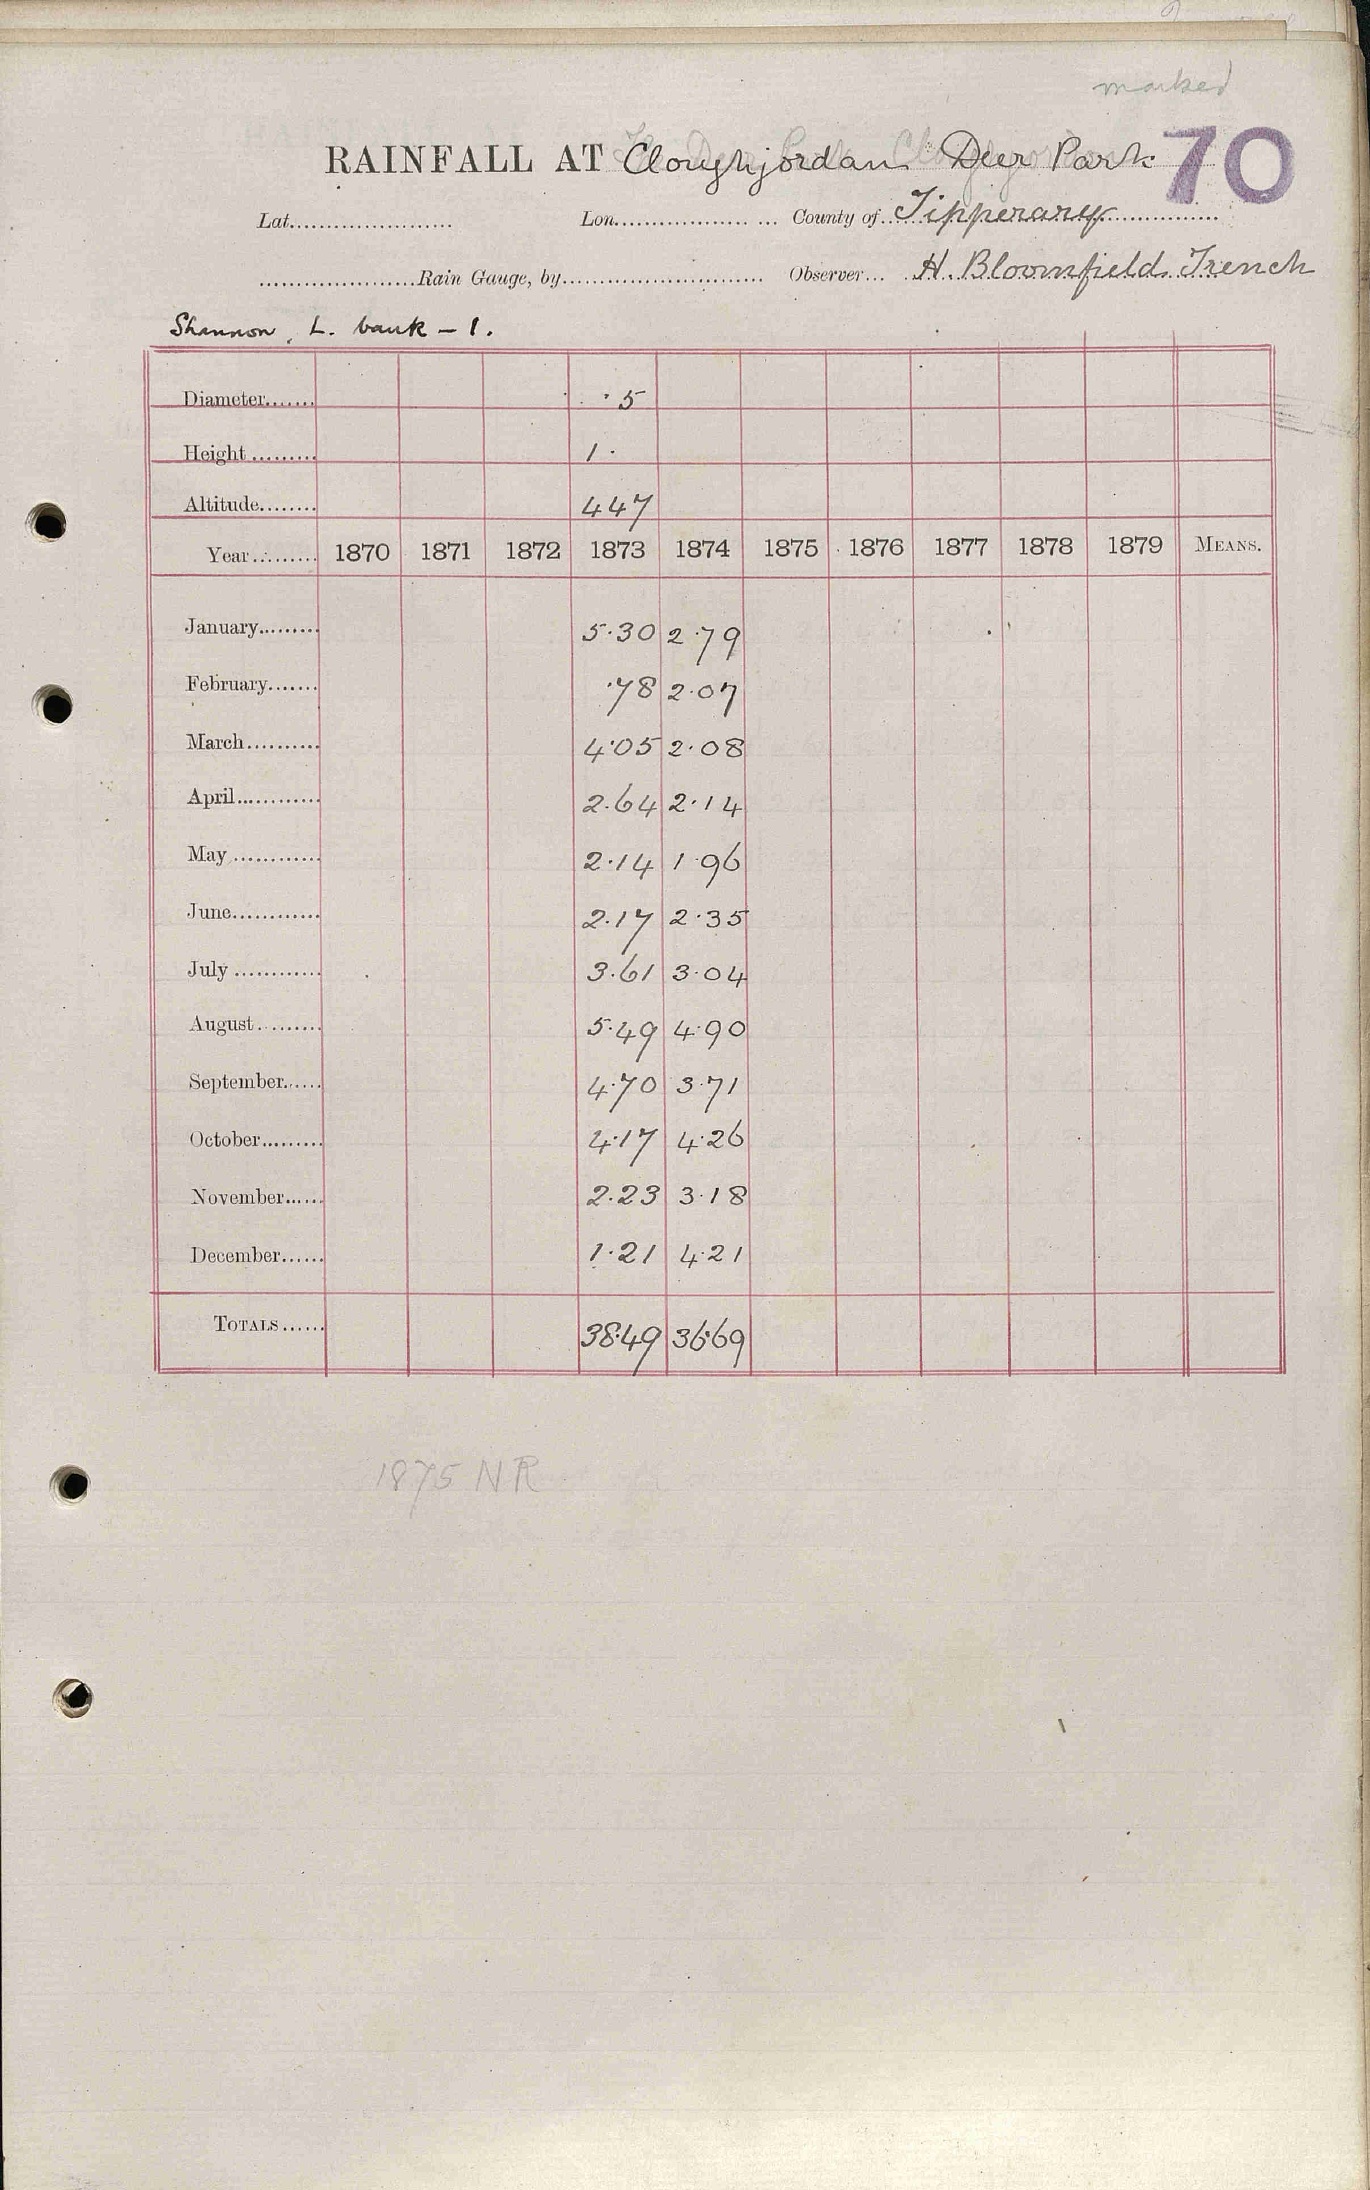 marked
RAINFALL AT Cloughjordan Deer Park 70
Lat...................... Lon................... ... County of...Tipperary...............
......................Rain Gauge, by............................ Observer... H. Bloomfield Trench
Shannon, L. bank – 1.
Diameter....... · 5
Height ......... 1 ·
Altitude........ 447
Year......... 1870 1871 1872 1873 1874 1875 1876 1877 1878 1879 MEANS.
January......... 5·30 2·79
February....... ·78 2·07
March.......... 4·05 2·08
April............ 2·64 2·14
May ............ 2·14 1·96
June............ 2·17 2·35
July ............ 3·61 3·04
August......... 5·49 4·90
September...... 4·70 3·71
October......... 4·17 4·26
November...... 2·23 3·18
December...... 1·21 4·21
TOTALS...... 38·49 36·69
1875 NR